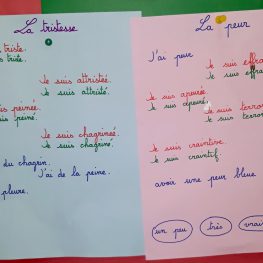 La tristesse
triste.
triste.
Je suis attristée.
Je suis attristé.
peinée.
suis peiné.
Je suis chagrinée.
Je suis chagriné.
du chagrin.
J'ai de la peine.
pleure.
La peur
J'ai peur
Je suis
Je suis
Je suis apeurée.
Je suis apeuré.
Je suis
Je suis
Je suis craintive.
Je suis craintif.
avoir une peur bleue
un peu
très